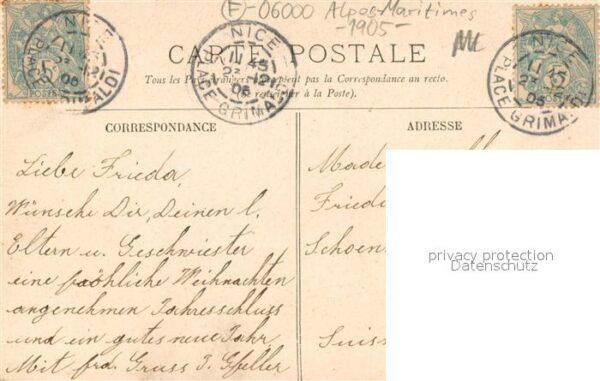 (F)-06000 Alpes-Maritimes
-1905-
CARTE POSTALE
Tous les Pays étrangers n'acceptent pas la Correspondance au recto.
(Se renseigner à la Poste).
NICE
PLACE GRIMALDI
NICE
PLACE GRIMALDI
NICE
PLACE GRIMALDI
CORRESPONDANCE
Liebe Frieda,
Wünsche Dir, Deinen l.
Eltern u. Geschwister
eine fröhliche Weihnachten
angenehmen Jahresschluss
und ein gutes neue Jahr,
Mit frd. Gruss J. Gfeller
ADRESSE
Made
Fried
Schoen
Suiss
privacy protection
Datenschutz